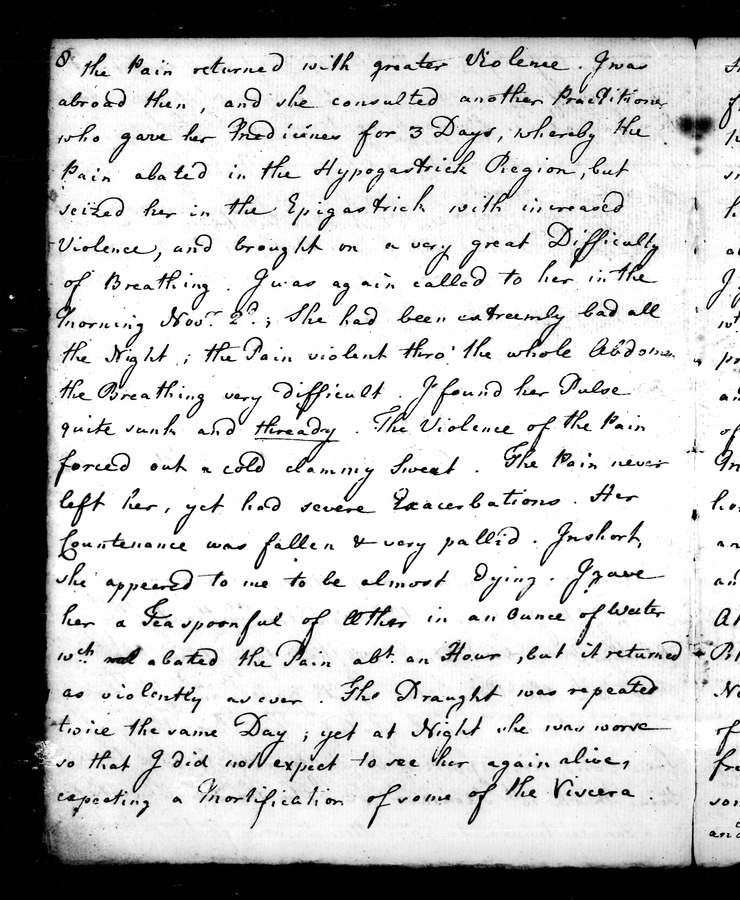 8
the Pain returned with greater Violence. I was
abroad then, and she consulted another Practitioner
who gave her Medicines for 3 Days, whereby the
Pain abated in the Hypogastrick Region, but
seized her in the Epigastrick with increased
Violence, and brought on a very great Difficulty
of Breathing. I was again called to her in the
Morning Novr. 2d.; She had been extreemly bad all
the Night; the Pain violent thro' the whole Abdomen
the Breathing very difficult. I found her Pulse
quite sunk and thready. The Violence of the Pain
forced out a cold clammy Sweat. The Pain never
left her, yet had severe Exacerbations. Her
Countenance was fallen & very pallid. In short,
she appeared to me to be almost dying. I gave
her a Teaspoonful of Æther in an Ounce of Water
wch abated the Pain abt. an Hour, but it returned
as violently as ever. The Draught was repeated
twice the same Day; yet at Night she was worse
so that I did not expect to see her again alive,
expecting a Mortification of some of the Viscera.